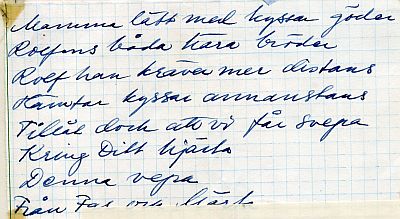 Mamma lätt med kyssar göder
Rolfens båda kära bröder
Rolf han kräver mer distans
Hämtar kyssar annanstans
Tillåt doch att vi får svepa
Kring Ditt hjärta
Denna vepa
Från Far och Märta